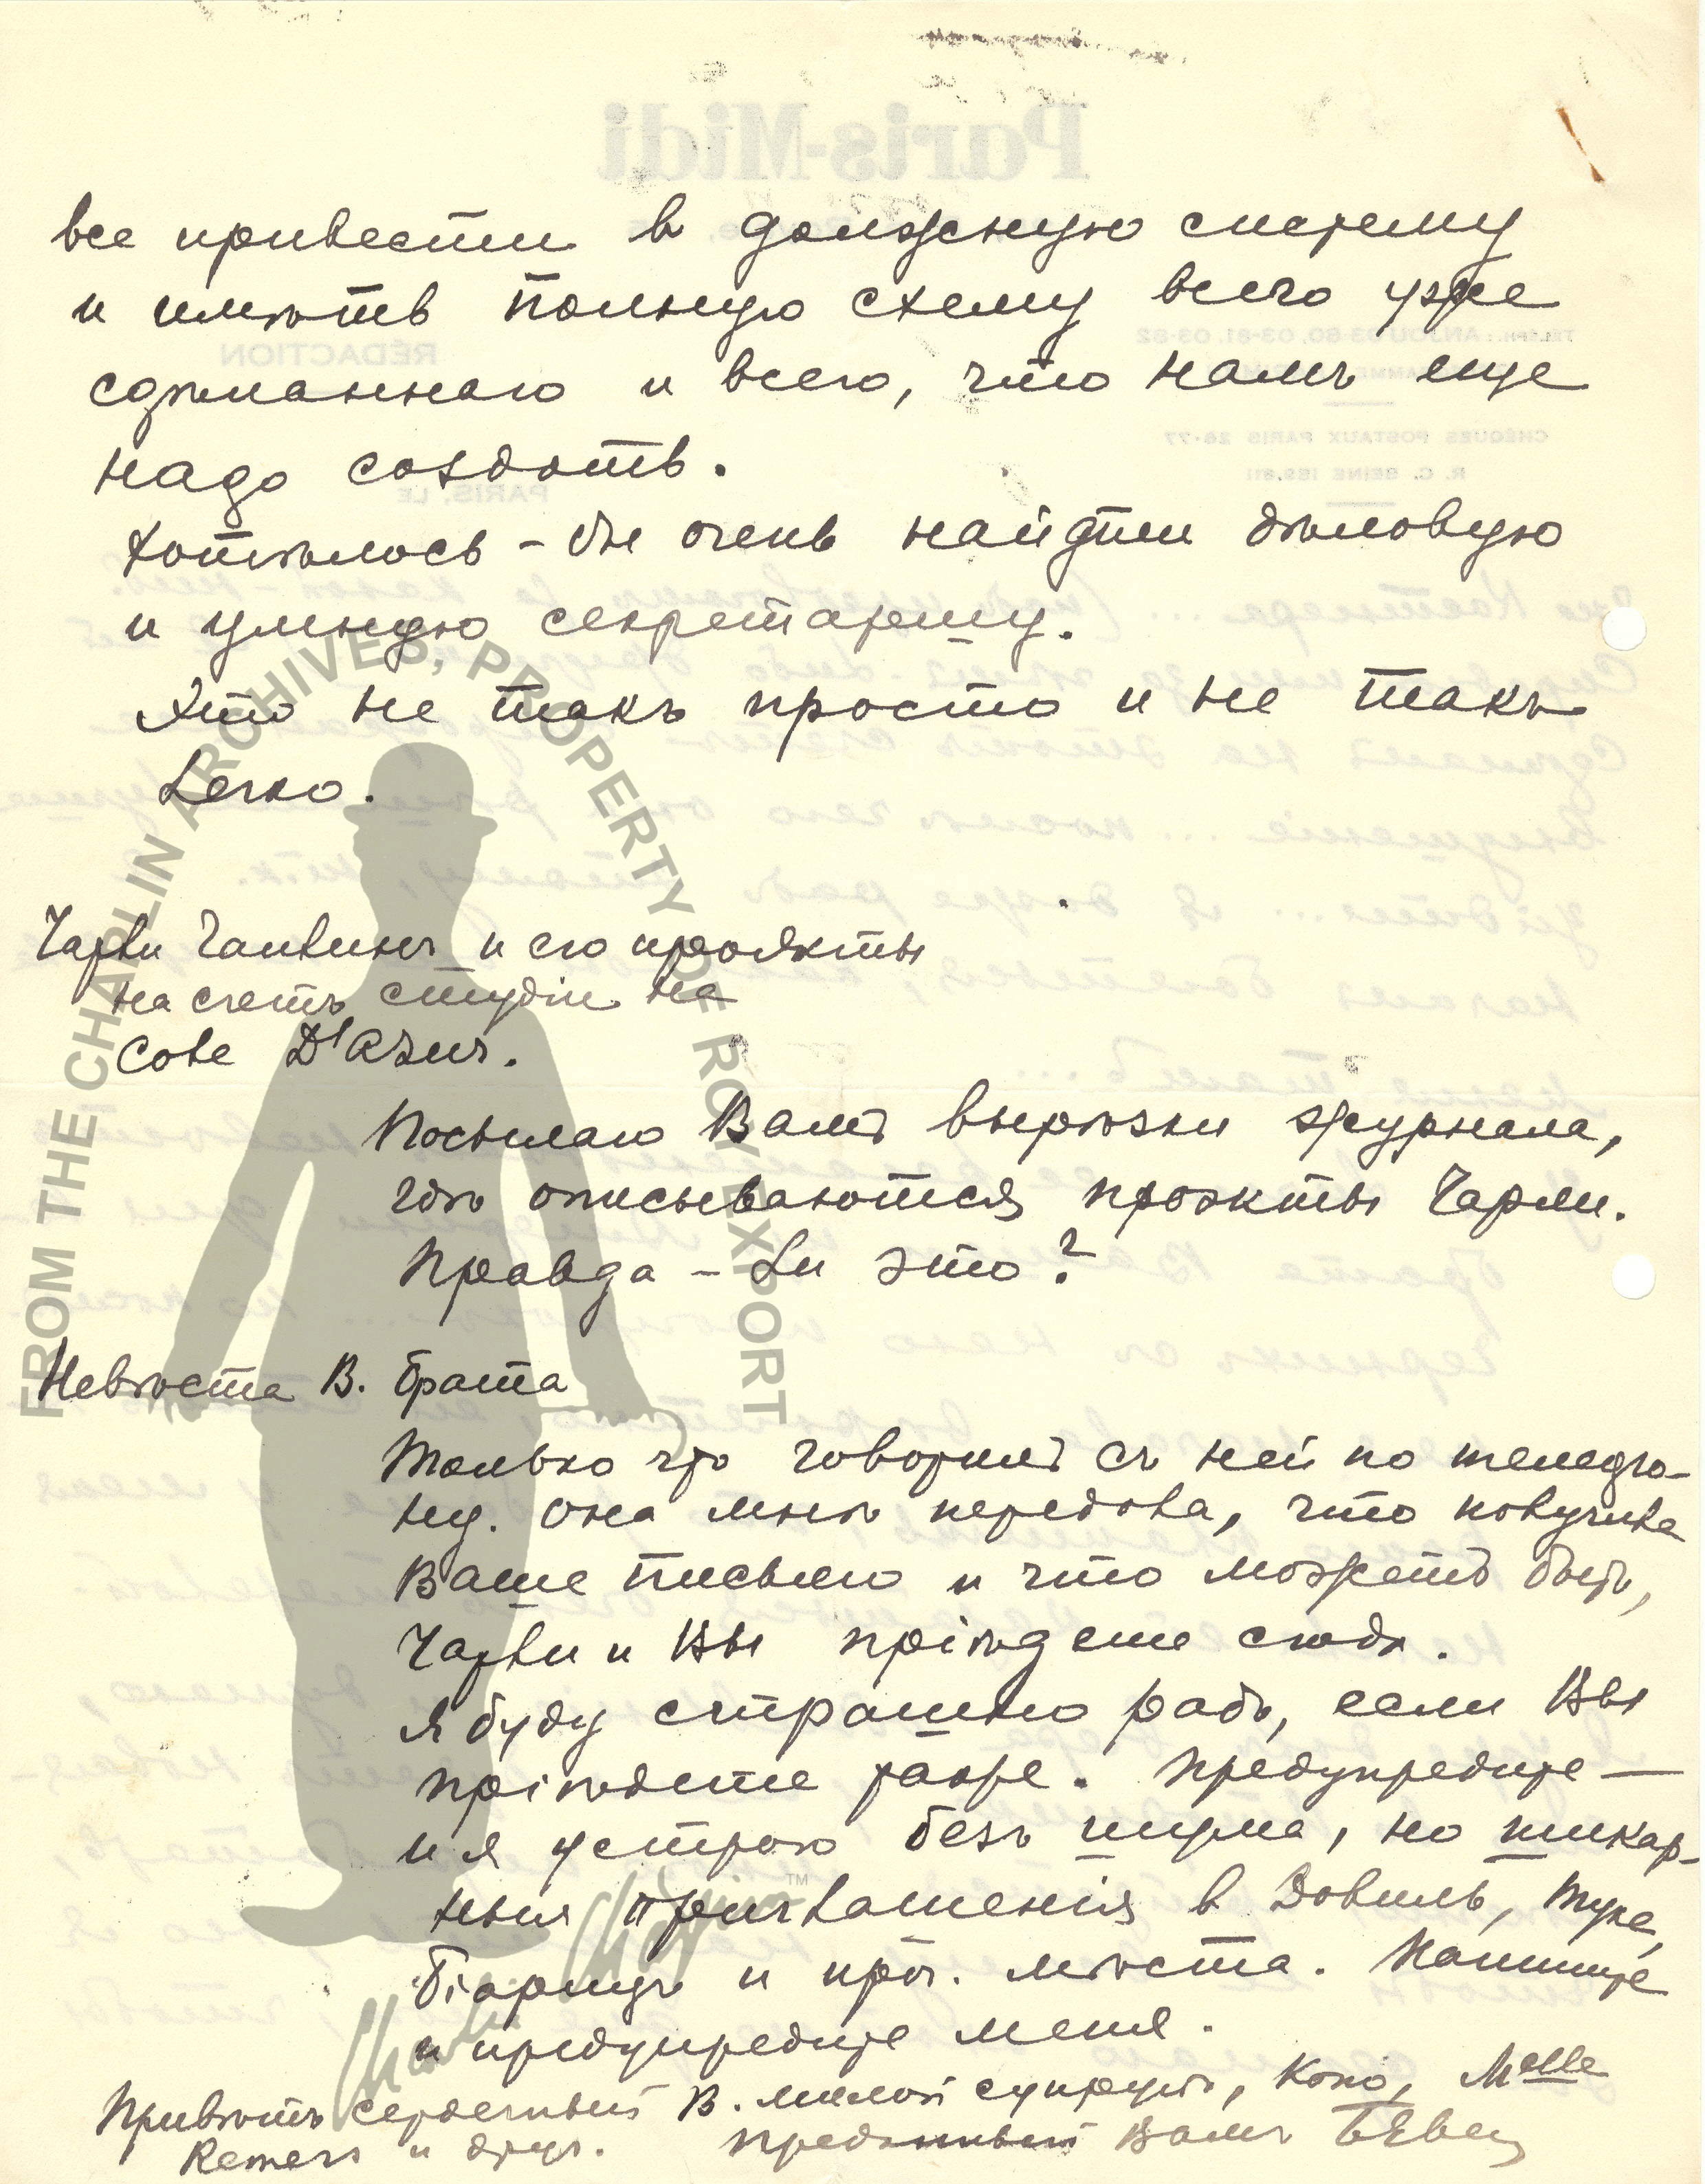 Paris-Midi
RÉDACTION
PARIS, LE
CHÈQUES POSTAUX PARIS 26-77
R. C. SEINE 199.811
все привести в должную систему
и имѣть полную схему всего уже
сдѣланнаго и всего, что намъ еще
надо создать.
Хотѣлось-бы очень найдти дѣловую
и умную секретаршу.
Это не такъ просто и не такъ
легко.
Чарли Чаплинъ и его проэкты
на счетъ студіи на
Cote D'Azur.
Посылаю Вамъ вырѣзки журнала,
гдѣ описываются проэкты Чарли.
Правда-ли это?
Невѣста В. брата
Только что говорилъ съ ней по телефо-
ну. Она мнѣ передала, что получила
Ваше письмо и что можетъ быть,
Чарли и Вы пріѣдете сюда.
Я буду страшно радъ, если Вы
пріѣдете тоже. Предупредите —
и я устрою безъ шума, но шикар-
ныя приглашенія в Довиль, Туке,
Біарицъ и проч. мѣста. Напишите
и предупредите меня.
Привѣтъ сердечный В. милой супругѣ, Коно, Melle
и друг. преданный Вамъ
FROM THE CHAPLIN ARCHIVES, PROPERTY OF ROY EXPORT
Charlie Chaplin™